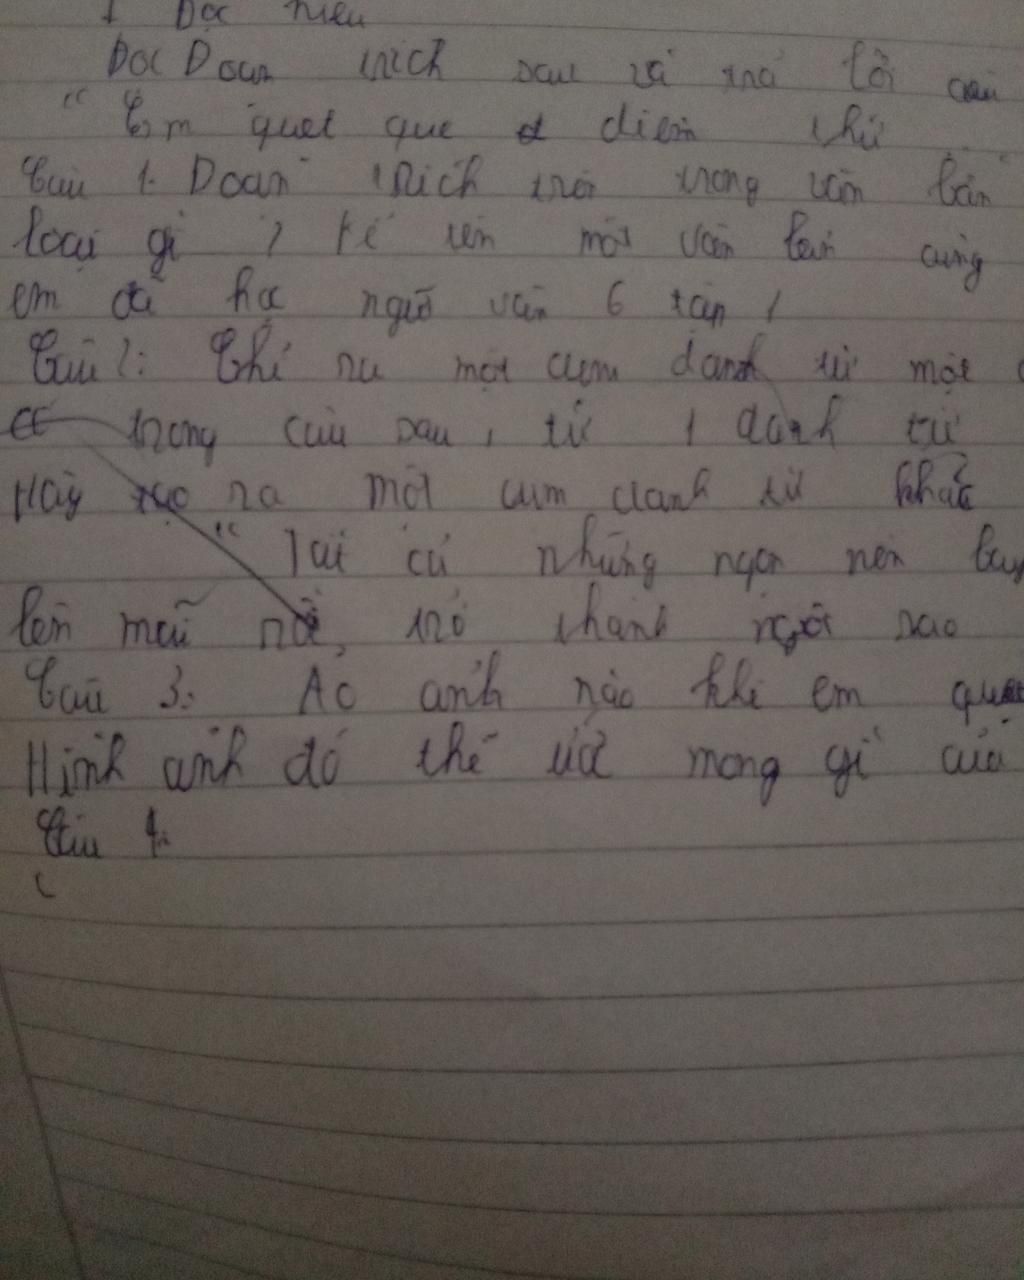 I Đọc hiểu
Đọc Đoạn trích sau và trả lời câu
“ Em quẹt que diêm thứ
Câu 1. Đoạn trích trên trong văn bản
loại gì ? Kể tên một văn bản cùng
em đã học ngữ văn 6 tập 1
Câu 2: Chỉ ra một cụm danh từ một
trong câu sau, từ 1 danh từ
Hãy tạo ra một cụm danh từ khác
“ Tất cả những ngọn nến bay
lên mãi rồi, trở thành ngôi sao
Câu 3: Ảo ảnh nào khi em quẹt
Hình ảnh đó thể ước mong gì của
Câu 4: